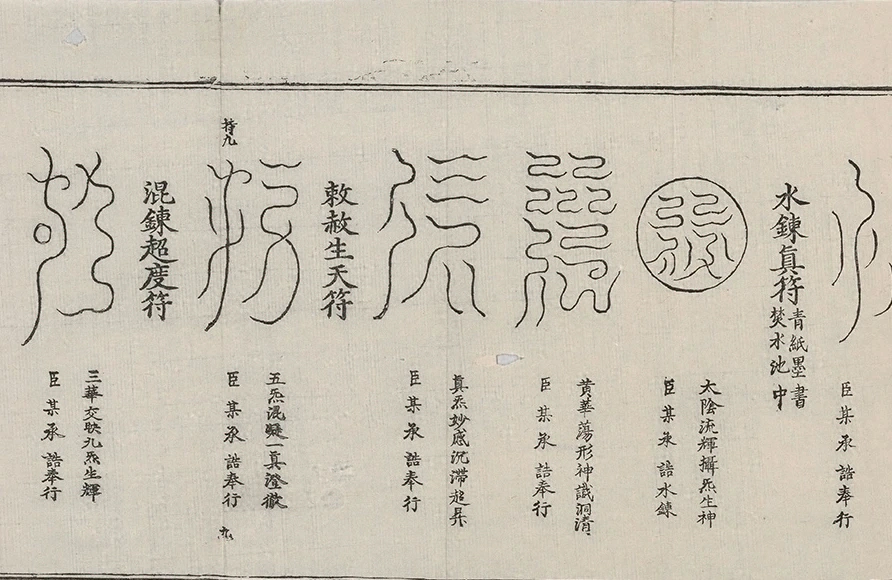 臣某承誥奉行
水鍊真符
青紙墨書
焚水池中
太陰流輝攝炁生神
臣某承誥水鍊
黃華蕩形神識洞清
臣某承誥奉行
真炁妙感沉滯超昇
臣某承誥奉行
敕赦生天符
五炁混凝一真澄徹
臣某承誥奉行
混鍊超度符
三華交映九炁生輝
臣某承誥奉行